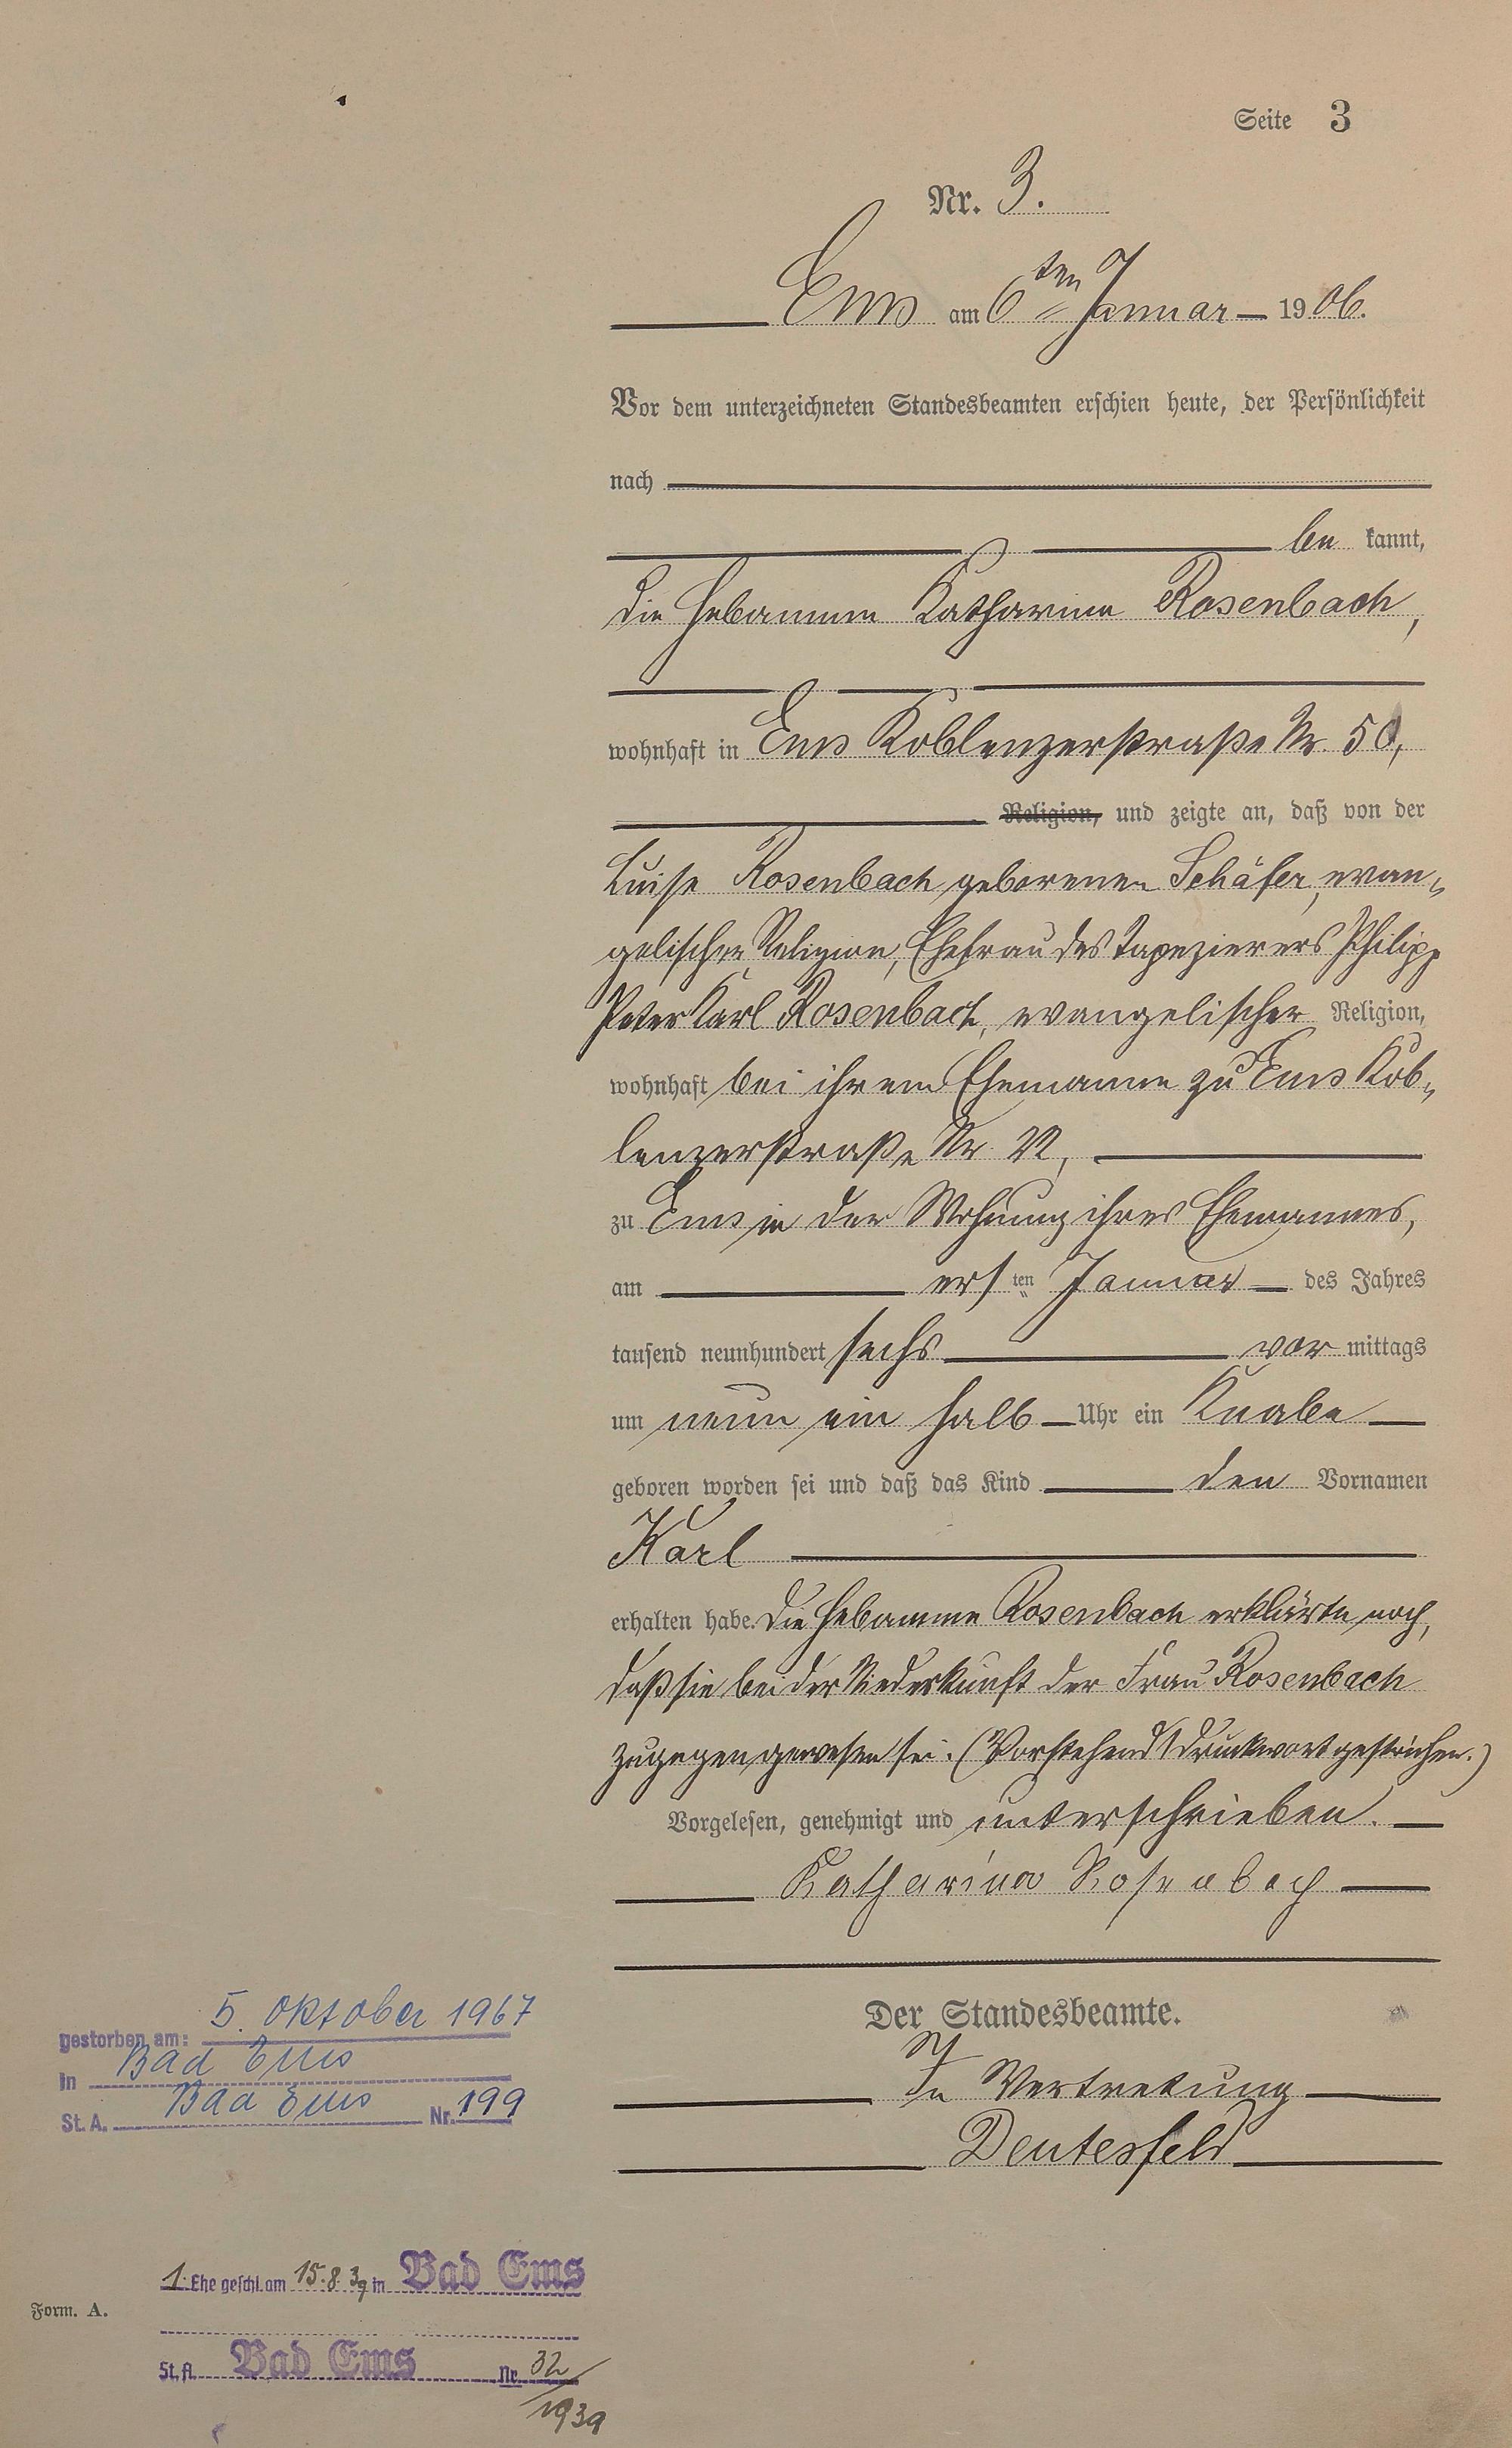 Seite 3
Nr. 3.
Ems am 6ten Januar 1906.
Vor dem unterzeichneten Standesbeamten erschien heute, der Persönlichkeit
nach
be kannt,
die Hebamme Katharina Rosenbach,
wohnhaft in Ems Koblenzerstraße Nr. 50,
Religion, und zeigte an, daß von der
Luise Rosenbach geborenen Schäfer, evan-
gelischer Religion, Ehefrau des Tapezierers Philipp
Peter Karl Rosenbach, evangelischer Religion,
wohnhaft bei ihrem Ehemanne zu Ems Kob-
lenzerstraße Nr.
zu Ems in der Wohnung ihres Ehemannes,
am ersten Januar des Jahres
tausend neunhundert sechs vor mittags
um neun ein halb Uhr ein Knabe
geboren worden sei und daß das Kind den Vornamen
Karl
erhalten habe. Die Hebamme Rosenbach erklärte noch,
daß sie bei der Niederkunft der Frau Rosenbach
zugegen gewesen sei. (Vorstehend 1 Druckwort gestrichen.)
Vorgelesen, genehmigt und unterschrieben.
Katharina Rosenbach
Der Standesbeamte.
In Vertretung
Deutesfeld
gestorben am: 5. Oktober 1967
in Bad Ems
St. A. Bad Ems Nr. 199
1. Ehe geschl. am 15.8.39 in Bad Ems
St. A. Bad Ems Nr. 32/1939
Form. A.